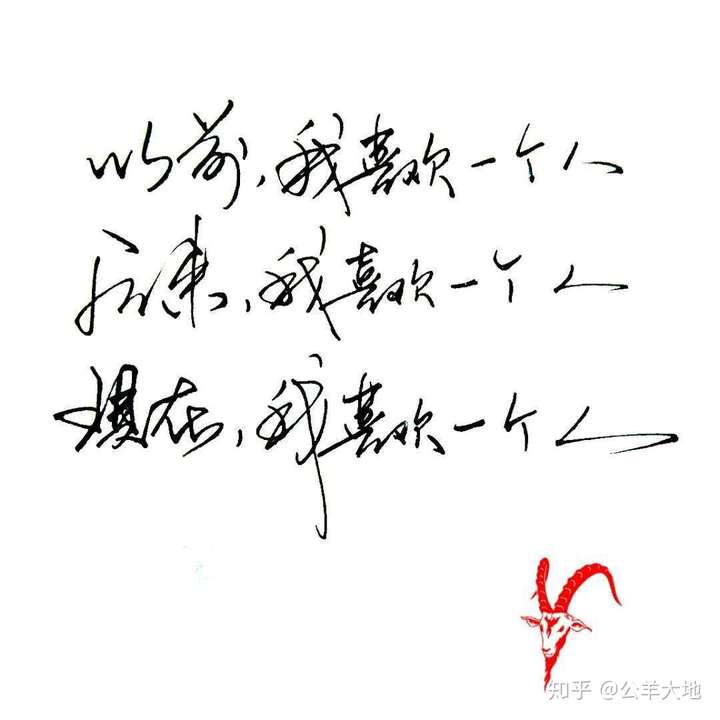 以前,我喜欢一个人
后来,我喜欢一个人
现在,我喜欢一个人
知乎 @公羊大地